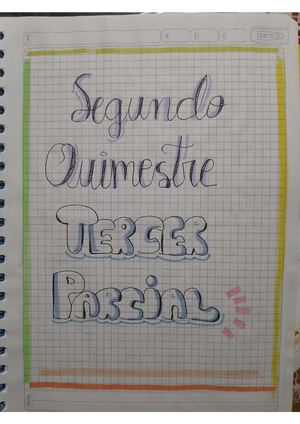 ESTILO
Segundo
Quimestre
TERCER
PARCIAL